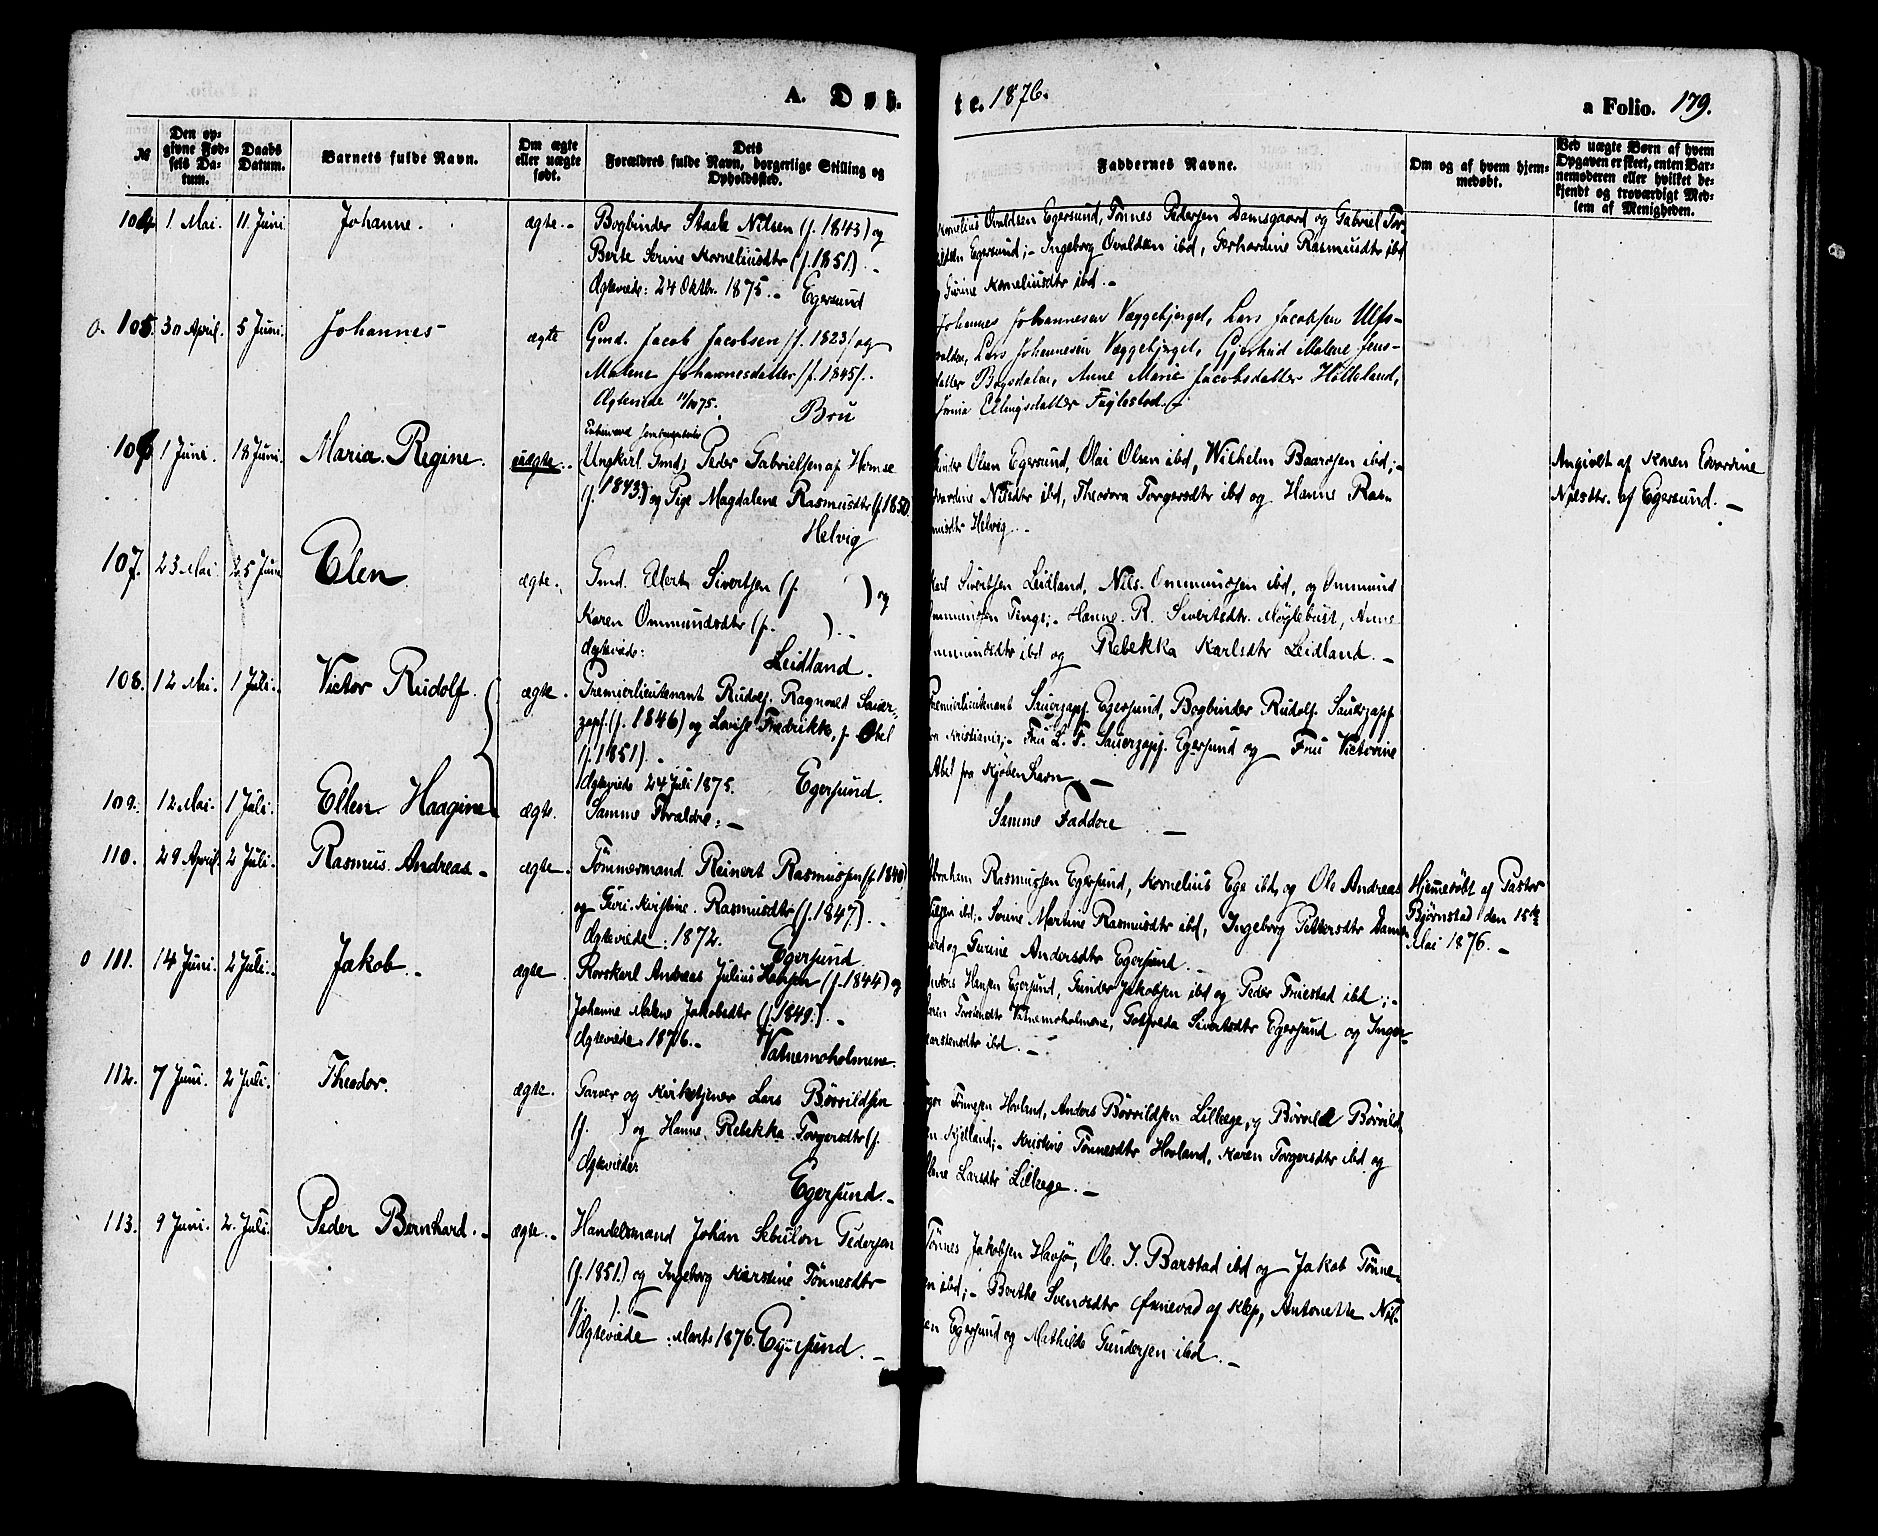 A. Døb-
te. 1876.
a Folio. 179.
№
Den op-
givne Fød-
sels Da-
tum.
Daabs
Datum.
Barnets fulde Navn.
Om ægte
eller uægte
født.
Dets
Forældres fulde Navn, borgerlige Stilling og
Opholdssted.
Faddernes Navne.
Om og af hvem hjem-
medøbt.
Ved uægte Børn af hvem
Opgaven er skeet, enten Bar-
nemoderen eller hvilket be-
kjendt og troværdigt Med-
lem af Menigheden.
104. 1 Mai. 11 Juni Johanne. ægte.- Bogbinder Staale Nilsen (f. 1843) og
Berte Serine Korneliusdtr (f. 1851). -
Ægteviede: 24 Oktbr. 1875. - Egersund
Kornelius Ovaldsen Egersund, Tønnes Pedersen Damsgaard og Gabriel Tor-
Egersund;- Ingeborg Ovaldsen ibd, Gerhardine Rasmusdtr ibd
Gurine Korneliusdtr ibd.-
o. 105. 30 April. 5 Juni. Johannes ægte Gmd. Jacob Jacobsen (f. 1823) og
Malene Johannesdatter (f. 1845).
Ægteviede 11/10 75. Bru
Johannes Johannesen Væggebjerget, Lars Jacobsen Ulfs-
Lars Johannesen Væggebjerget, Gjertrud Malene Jens-
datter Bogsdalen, Anne Marie Jacobsdatter Hilleland,
Ellingsdatter Fuglestad.
106. 1 Juni. 18 Juni. Maria Regine. uægte.- Ungkarl. Gmds. Peder Gabrielsen af Homse
(f. 1843.) og Pige Magdalene Rasmusdtr (f. 1850)
Helvig
Olsen Egersund, Olai Olsen ibd, Wilhelm Baarsen ibd;-
Edvardine Nilsdtr ibd, Theodora Torgersdtr ibd og Hanne Ras-
musdtr Helvig.-
Angivelt af Konen Edvardine
Nilsdtr. af Egersund. -
107. 23 Mai 25 Juni Elen ægte. Gmd. Ellert Sivertsen (f. ) og
Karen Ommundsdtr (f. ). -
Ægteviede: Leidland.
Karl Sivertsen Leidland, Nils Ommundsen ibd, og Ommund
Ommundsen Tengs;- Hanne R. Sivertsdtr. Møglebust, Anne
Ommundsdtr ibd og Rebekka Karlsdtr Leidland. -
108. 12 Mai. 1 Juli. Victor Rudolf. ægte. Premierlieutenant Rudolf Ragnvald Sauer-
zapf (f. 1846) og Lovise Fredrikke, f. Abel
(f. 1851). -
Ægteviede 24 Juli 1875. Egersund.
Premierlieutnant Sauerzapf Egersund, Bogbinder Rudolf Sauerzapf
fra Kristiania;- Fru L. F. Sauerzapf. Egersund og Fru Victorine
Abel fra Kjøbenhavn -
109. 12 Mai. 1 Juli. Ellen Haagine ægte. Samme Forældre: -
Samme Faddere. -
110. 29 April 2 Juli. Rasmus Andreas - ægte. Tømmermand Reinert Rasmussen (f. 1840)
og Guri Kirstine Rasmusdtr (f. 1847). -
Ægteviede: 1872. Egersund.
Abraham Rasmussen Egersund, Kornelius Ege ibd, og Ole Andreas
Nilsen ibd;- Serine Martine Rasmusdtr ibd, Ingeborg Pettersdtr Dams-
gaard og Gurine Andersdtr Egersund. -
Hjemmedøbt af Pastor
Bjørnstad den 15de
Mai 1876. -
o 111. 14 Juni. 2 Juli. Jakob. - ægte. Rorskarl Andreas Julius Hansen (f. 1844) og
Johanne Malene Jakobsdtr (f. 1849.). -
Ægteviede. 1876. - Vatnemoholmene.
Anders Hansen Egersund, Gunder Jakobsen ibd og Peder Fruestad ibd;-
Karen Torstensdtr Vatnemoholmene, Gotfreda Sivertsdtr Egersund og Inger
ibd. -
112. 7 Juni. 2 Juli. Theodor. ægte. Garver og Kirketjener Lars Børrildsen
(f. ) og Hanne Rebekka Torgersdtr (f.
Ægteviede: Egersund. -
Tønnesen Hovland, Anders Børrildsen Lilleege, og Børrild Børrild-
sen Kjelland;- Kristine Tønnesdtr Hovland, Karen Torgersdtr ibd og
Larsdtr Lilleege. -
113. 9 Juni. 2. Juli. Peder Bernhard. - ægte. - Handelsmand Johan Sebulon Pedersen
(f. 1851.) og Ingeborg Karstine Tønnesdtr
(f. ). -
Ægteviede : Marts 1876. Egersund. -
Tønnes Jakobsen Havsø, Ole I. Barstad ibd og Jakob Tønne-
sen ibd;- Berthe Svendsdtr Ørnevad af Klep, Antonette Nil-
sen Egersund og Mathilde Gundersen ibd. -